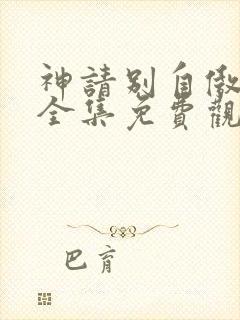 神請別自傲
全集免費觀
巴育